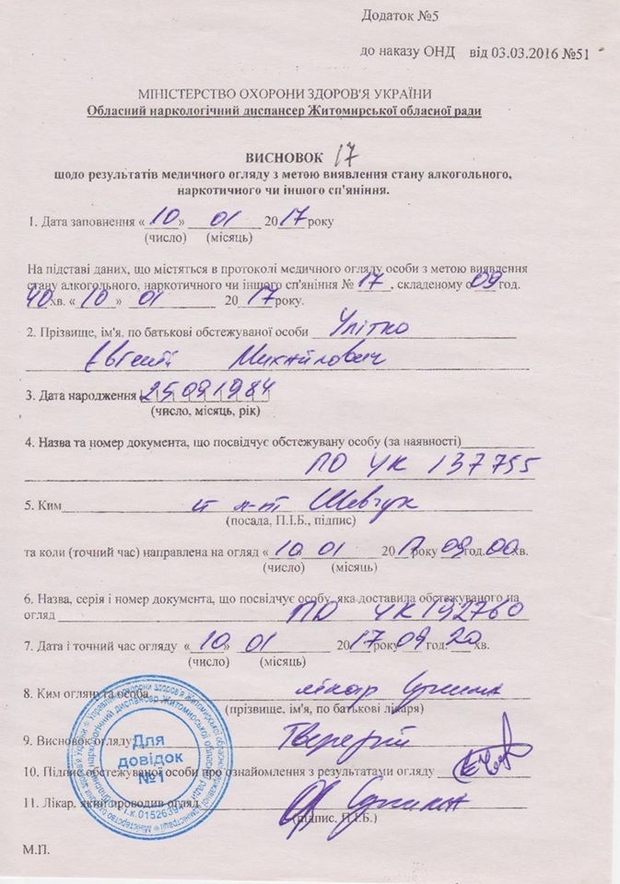 Додаток №5
до наказу ОНД від 03.03.2016 №51
МІНІСТЕРСТВО ОХОРОНИ ЗДОРОВ'Я УКРАЇНИ
Обласний наркологічний диспансер Житомирської обласної ради
ВИСНОВОК 17
щодо результатів медичного огляду з метою виявлення стану алкогольного,
наркотичного чи іншого сп'яніння.
1. Дата заповнення «10» 01 2017 року
(число) (місяць)
На підставі даних, що містяться в протоколі медичного огляду особи з метою виявлення
стану алкогольного, наркотичного чи іншого сп'яніння № 17, складеному о 09 год.
40 хв. «10» 01 2017 року.
2. Прізвище, ім'я, по батькові обстежуваної особи Улітко
Євгеній Михайлович
3. Дата народження 25091984
(число, місяць, рік)
4. Назва та номер документа, що посвідчує обстежувану особу (за наявності)
ПО УК 137755
5. Ким ст л-т Шевчук
(посада, П.І.Б., підпис)
та коли (точний час) направлена на огляд «10» 01 2017 року 09 год. 00 хв.
(число) (місяць)
6. Назва, серія і номер документа, що посвідчує особу, яка доставила обстежуваного на
огляд ПО УК 192760
7. Дата і точний час огляду «10» 01 2017 року 09 год. 20 хв.
(число) (місяць)
8. Ким оглянута особа лікар
(прізвище, ім'я, по батькові лікаря)
9. Висновок огляду Тверезий
10. Підпис обстежуваної особи про ознайомлення з результатами огляду
11. Лікар, який проводив огляд
(підпис, П.І.Б.)
Для
довідок
№1
М.П.